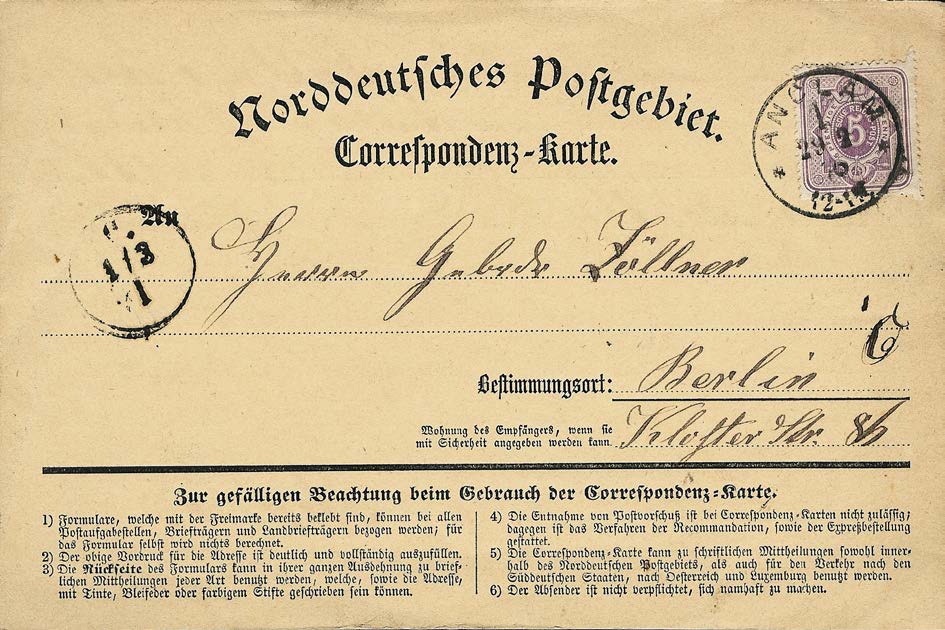 Norddeutsches Postgebiet.
Correspondenz-Karte.
ANCLAM
29 2
12-1
5
An
1/3
1
Herren Gebrdr Zöllner
C
Bestimmungsort: Berlin
Wohnung des Empfängers, wenn sie
mit Sicherheit angegeben werden kann. Kloster Str.
Zur gefälligen Beachtung beim Gebrauch der Correspondenz-Karte.
1) Formulare, welche mit der Freimarke bereits beklebt sind, können bei allen
Postaufgabestellen, Briefträgern und Landbriefträgern bezogen werden; für
das Formular selbst wird nichts berechnet.
2) Der obige Vordruck für die Adresse ist deutlich und vollständig auszufüllen.
3) Die Rückseite des Formulars kann in ihrer ganzen Ausdehnung zu brief-
lichen Mittheilungen jeder Art benutzt werden, welche, sowie die Adresse,
mit Tinte, Bleifeder oder farbigem Stifte geschrieben sein können.
4) Die Entnahme von Postvorschuß ist bei Correspondenz-Karten nicht zulässig;
dagegen ist das Verfahren der Recommandation, sowie der Expreßbestellung
gestattet.
5) Die Correspondenz-Karte kann zu schriftlichen Mittheilungen sowohl inner-
halb des Norddeutschen Postgebiets, als auch für den Verkehr nach den
Süddeutschen Staaten, nach Oesterreich und Luxemburg benutzt werden.
6) Der Absender ist nicht verpflichtet, sich namhaft zu machen.